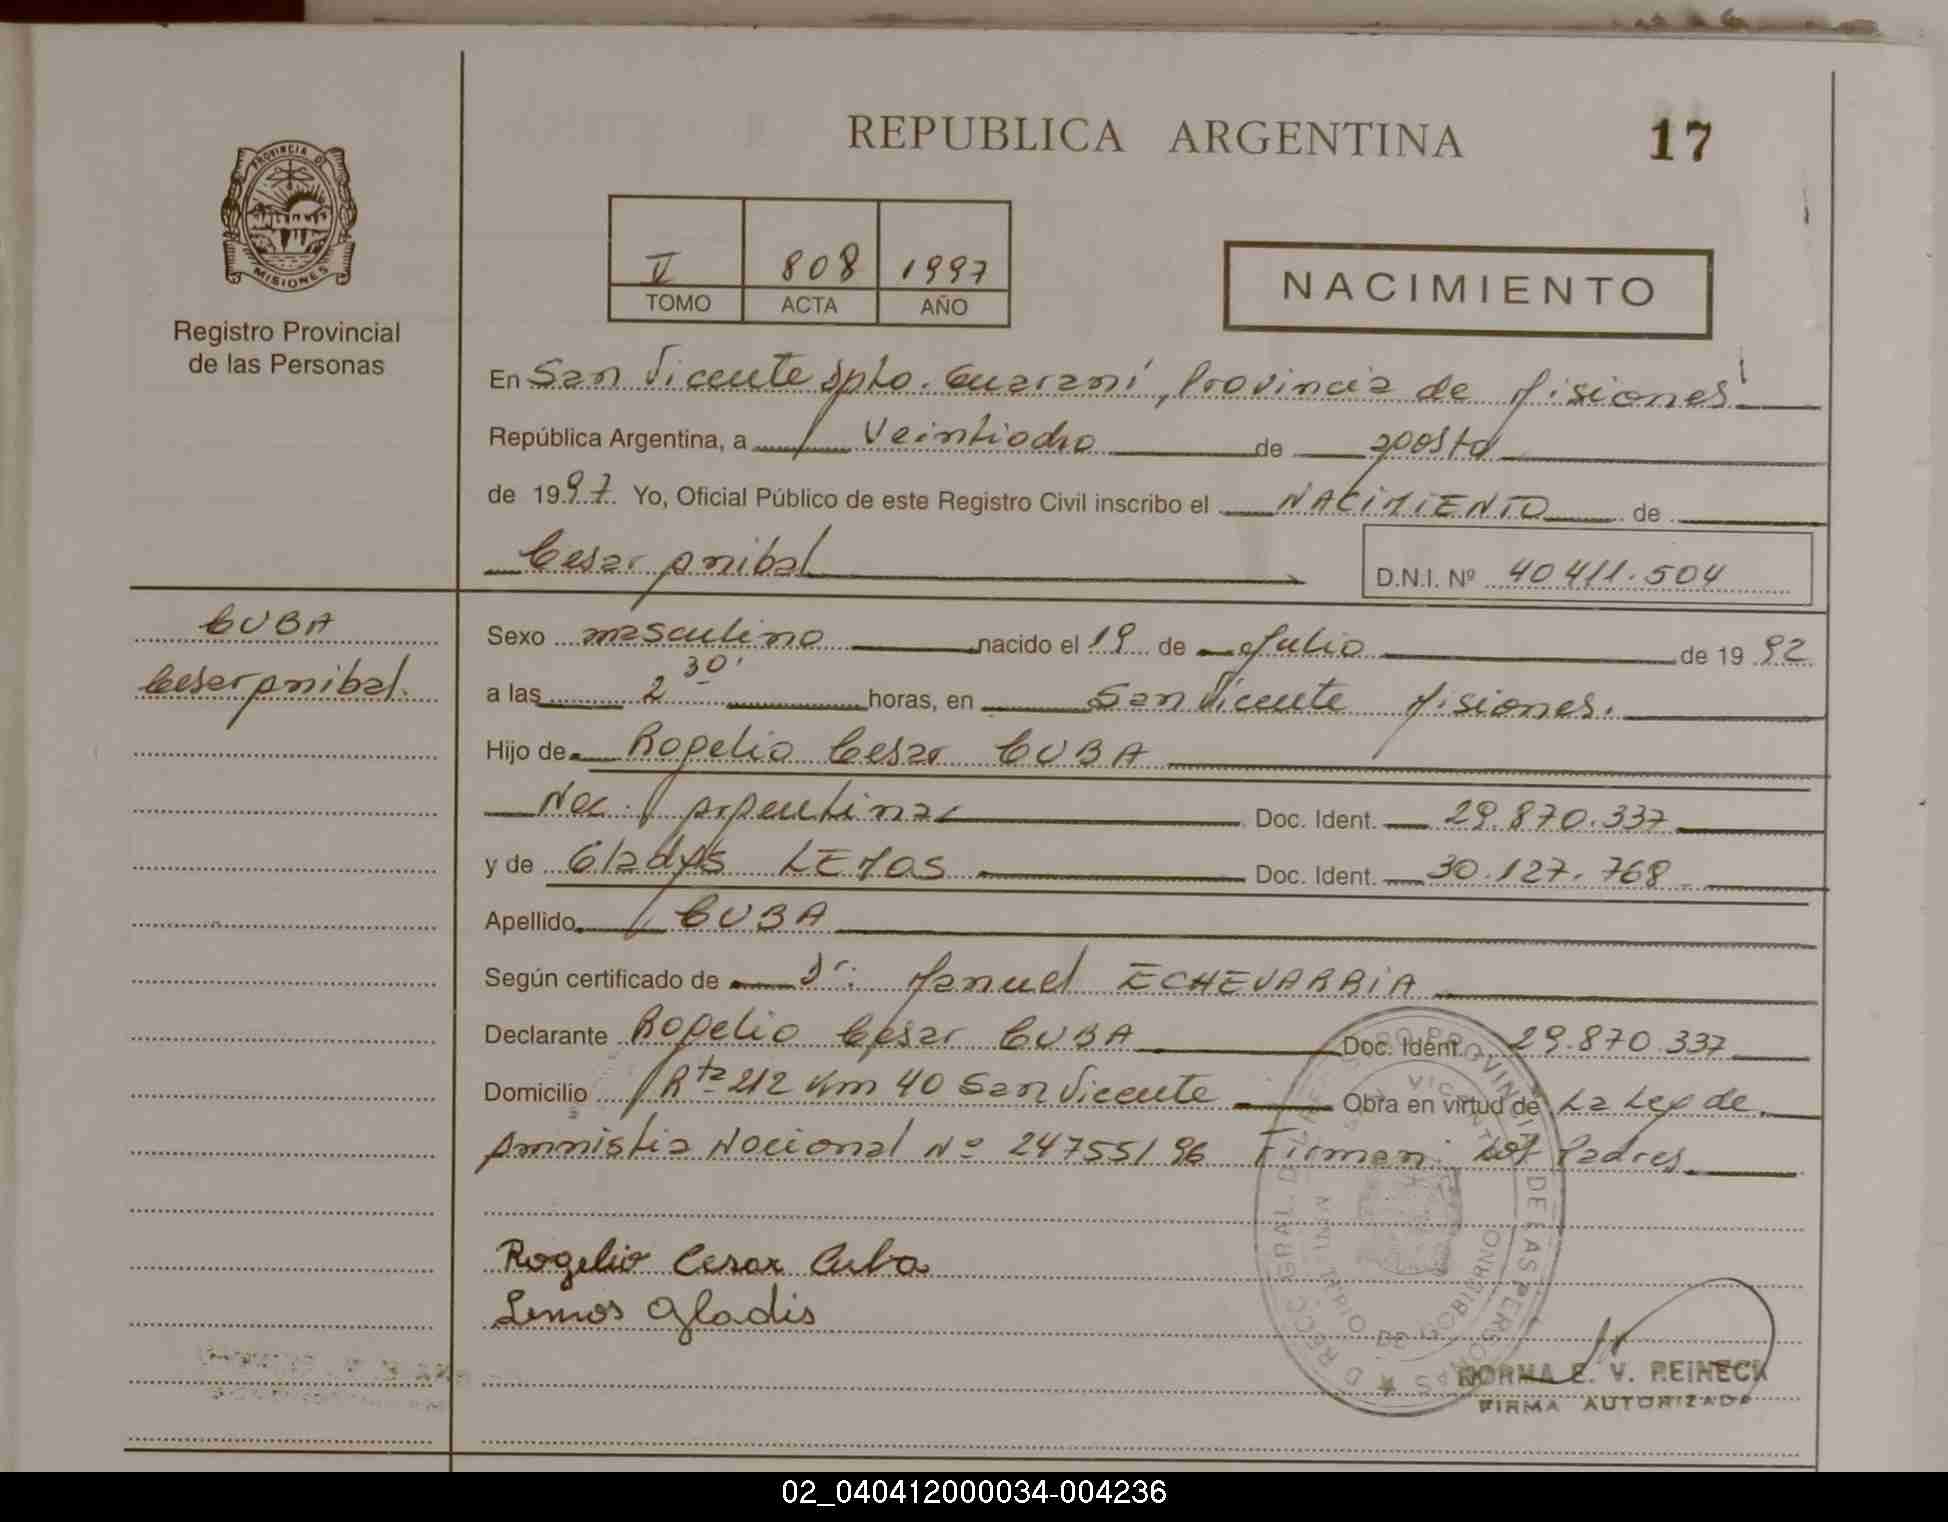 REPUBLICA ARGENTINA
17
PROVINCIA DE
MISIONES
Registro Provincial
de las Personas
V 808 1997
TOMO ACTA AÑO
NACIMIENTO
En San Vicente Dpto. Guaraní, Provincia de Misiones
República Argentina, a Veintiocho de agosto
de 1997 Yo, Oficial Público de este Registro Civil inscribo el NACIMIENTO de
Cesar Anibal
D.N.I. Nº 40411.504
CUBA
Cesar Anibal.
Sexo masculino nacido el 19 de Julio de 1992
a las 2 30' horas, en San Vicente Misiones.
Hijo de Rogelio Cesar CUBA
Nac. Argentina Doc. Ident. 29.870.337
y de Gladys LEMOS Doc. Ident. 30.127.768
Apellido CUBA
Según certificado de Dr. Manuel ECHEVARRIA
Declarante Rogelio Cesar CUBA Doc. Ident. 29.870.337
Domicilio Rta 212 Km 40 San Vicente Obra en virtud de La Ley de
Amnistia Nacional Nº 24755/96 Firman los Padres
Rogelio Cesar Cuba
Lemos Gladis
NORMA E. V. REINECK
FIRMA AUTORIZADA
02_040412000034-004236